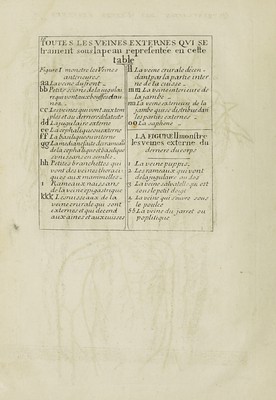 TOUTES LES VEINES EXTERNES QUI SE
trament sous la peau representée en cette
table
Figure I monstre les Veines
anterieures
aa La veine du front
rameaux
cc Les veines qui vont aux tem
ples et au derriere de la teste
dd La jugulaire externe
ee La cephalique ou externe
ff La basilique ou interne
gg La mediane faite des rameaux
de la cephalique et basilique
unissans ensemble
hh Petites branchettes qui
vont des veines thoraci
ques aux mammelles
i Rumeaux naissans
de la veine epigastrique
kkk Les nuisseaux de la
veine crurale qui sont
externes et qui decend
aux aines et aux cuisses
ll La veine crurale decen
dant par la partie inter
ne de la cuisse
mm La veine interieure de
la jambe
nn La veine exterieure de la
jambe qui se distribue dan
les parties externes
oo La saphene
LA FIGURE II monstre
les veines externe du
derriere du corps
1 La veine puppis
2 Les rameaux qui vont
de la jugulaire au dos
3 La veine salvatelle qui est
sous le petit doigt
4 La veine qui courre sous
le poulce
55 La veine du jarret ou
poplitique